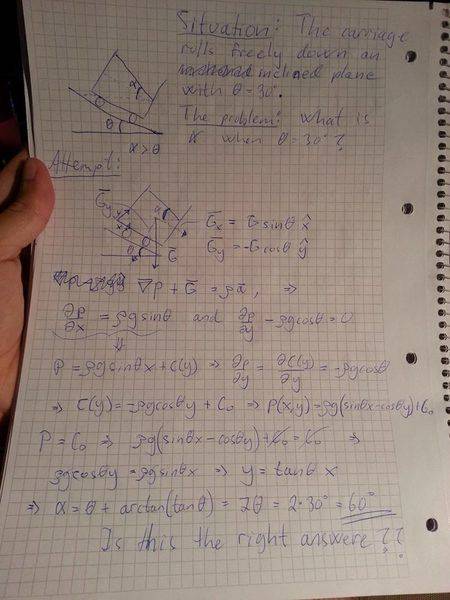 Situation: The carriage
rolls freely down an
inclined plane
with θ = 30°.
The problem: What is
α when θ = 30° ?
α
θ
α > θ
Attempt:
G̅y
x
α
θ
G̅
G̅x = G sinθ x̂
G̅y = -G cosθ ŷ
∇P + G̅ = ρa̅, ⇒
∂P/∂x = ρg sinθ and ∂P/∂y - ρg cosθ = 0
⇓
P = ρg sinθ x + C(y) ⇒ ∂P/∂y = ∂C(y)/∂y = -ρg cosθ
⇒ C(y) = -ρg cosθ y + C₀ ⇒ P(x,y) = ρg(sinθx - cosθy) + C₀
P = C₀ ⇒ ρg(sinθx - cosθy) + C₀ = C₀ ⇒
ρg cosθ y = ρg sinθ x ⇒ y = tanθ x
⇒ α = θ + arctan(tanθ) = 2θ = 2·30° = 60°
Is this the right answere ??